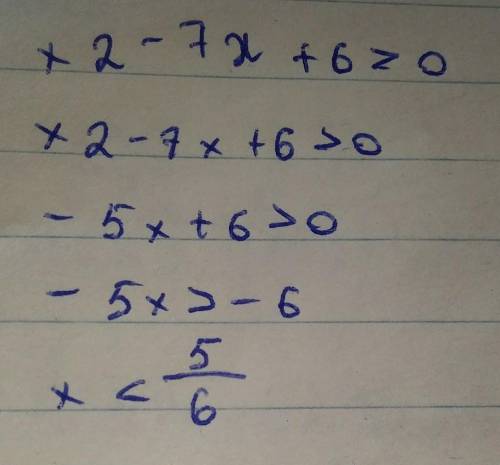 x 2 - 7x + 6 ≥ 0
x 2 - 7x + 6 > 0
- 5x + 6 > 0
- 5x > - 6
x < 5/6